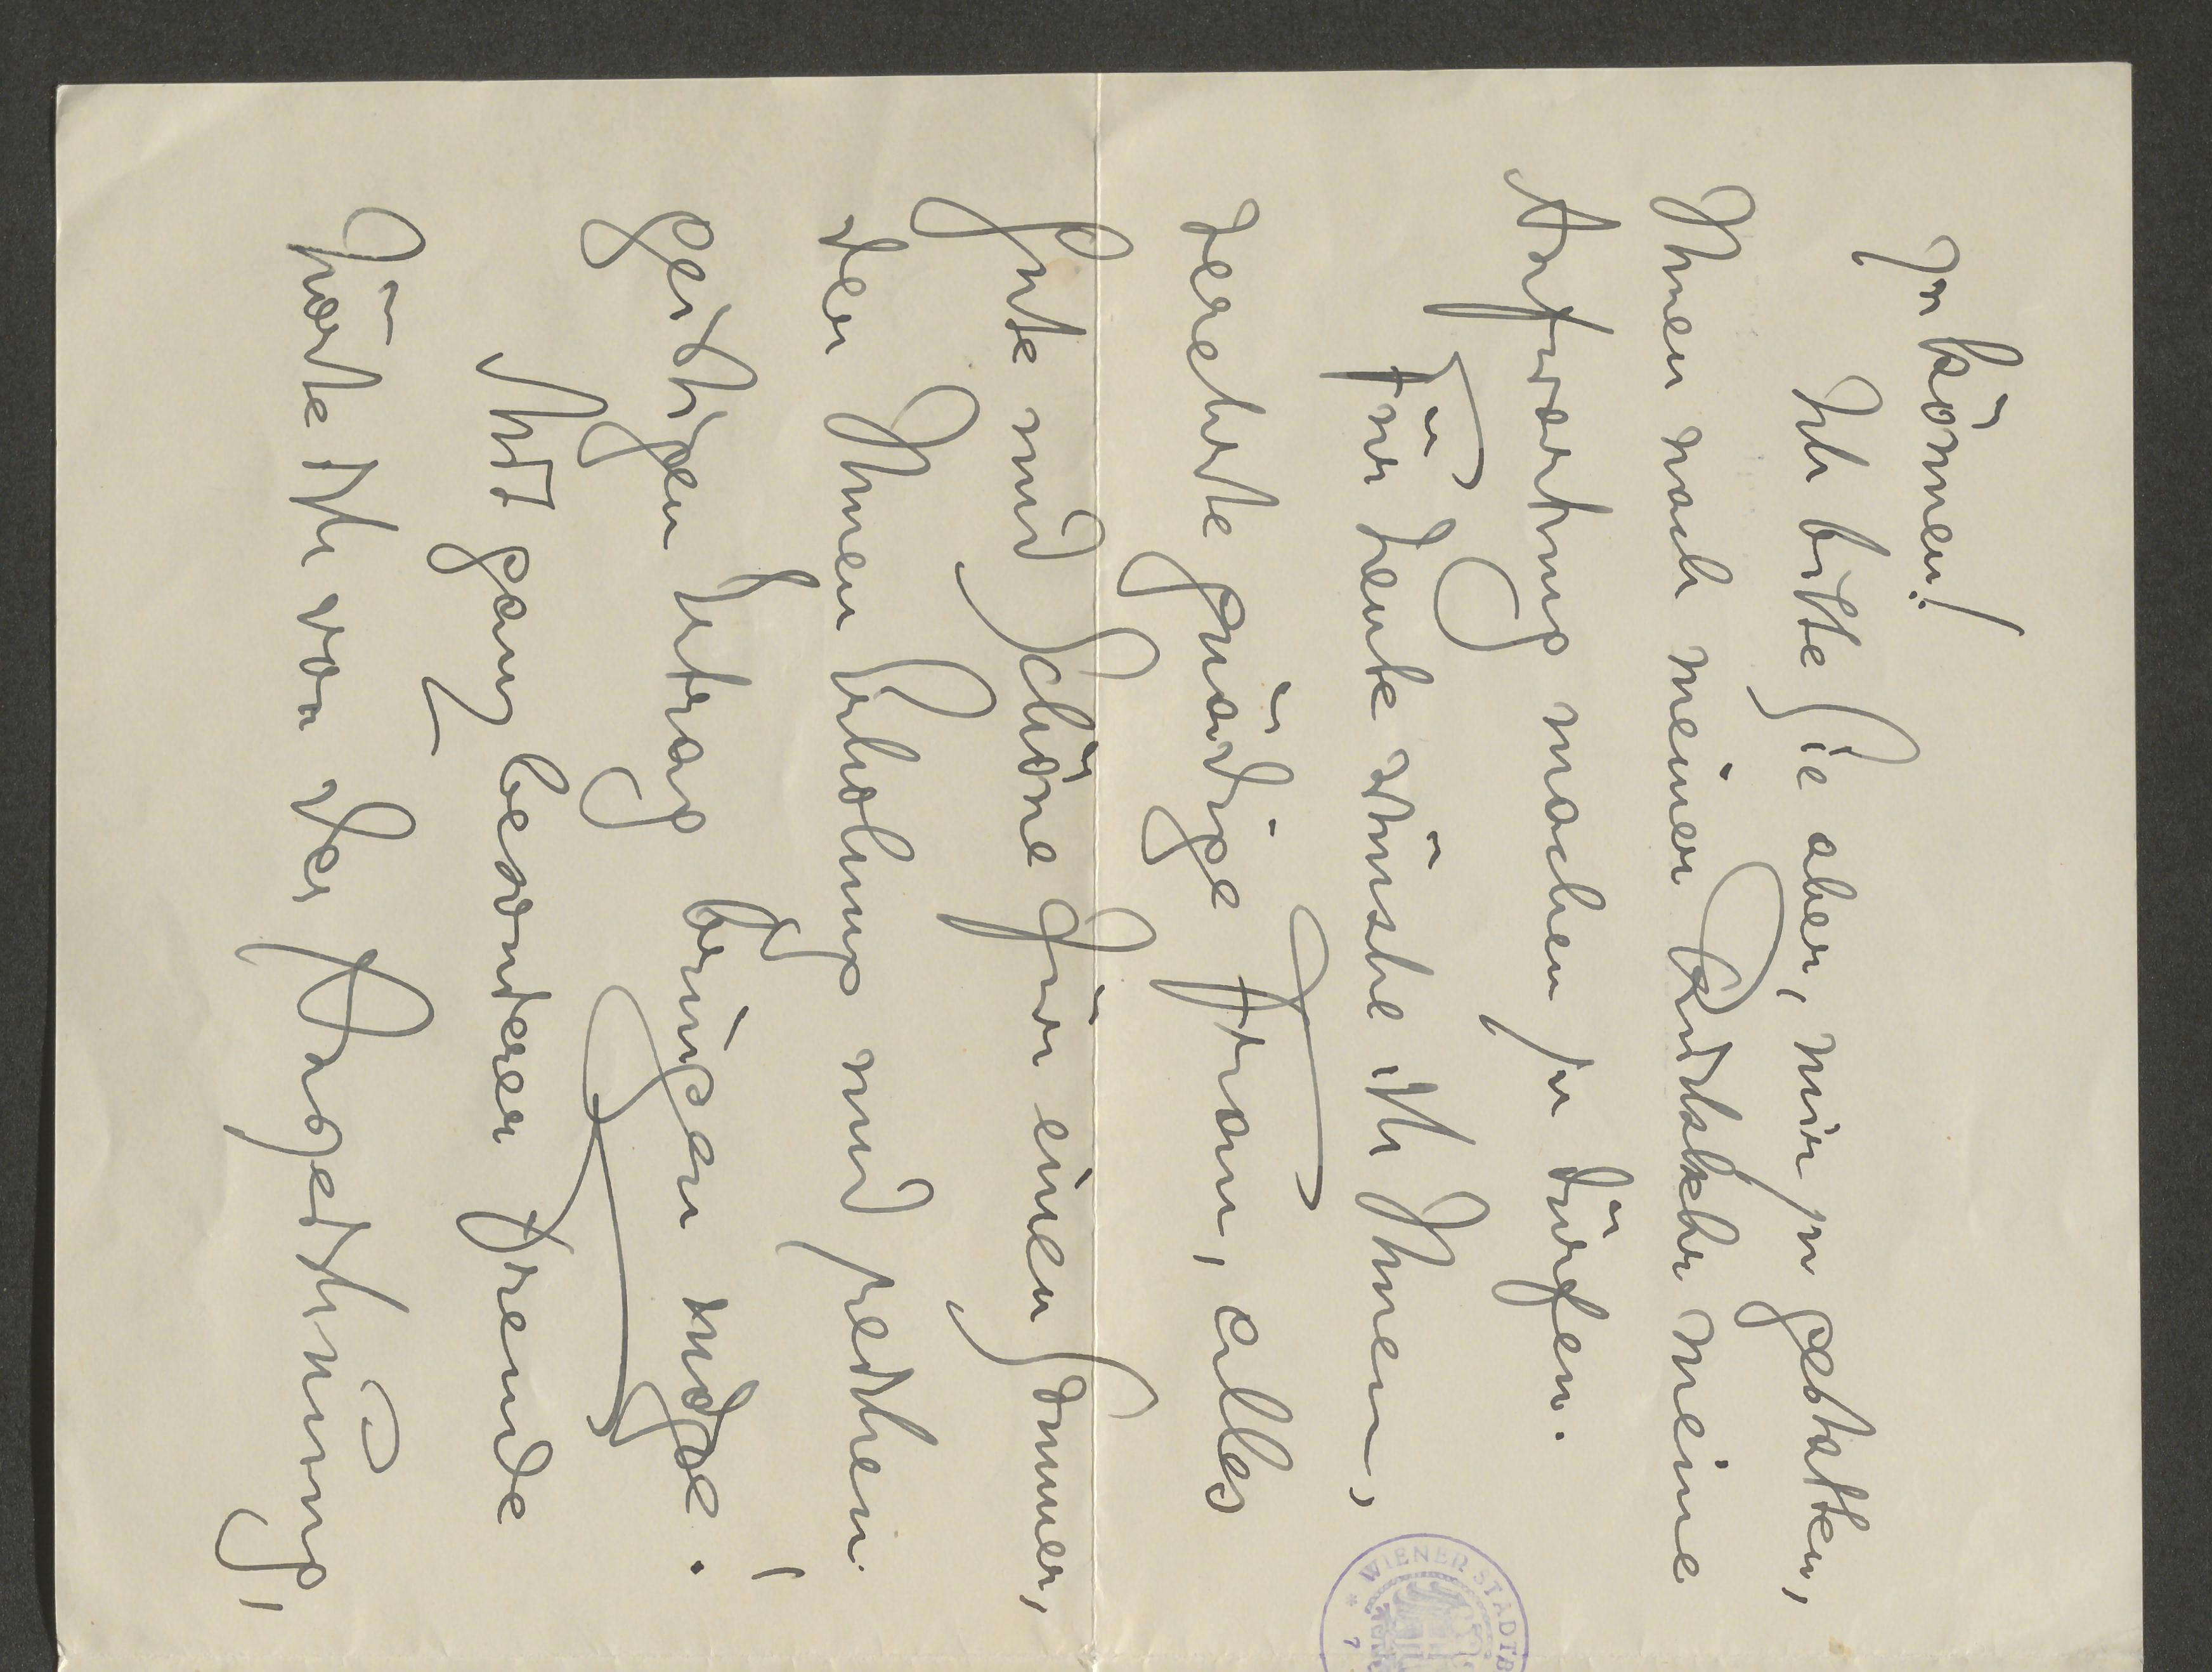 zu können!
Ich bitte Sie aber, mir zu gestatten,
Ihnen nach meiner Rückkehr meine
Aufwartung machen zu dürfen.
Für heute wünsche ich Ihnen,
verehrte gnädige Frau, alles
Gute und Schöne für einen Sommer,
der Ihnen Erholung und reichen
geistigen Ertrag bringen möge!
Mit ganz besonderer Freude
hörte ich von der Auszeichnung,
* WIENER STADTB